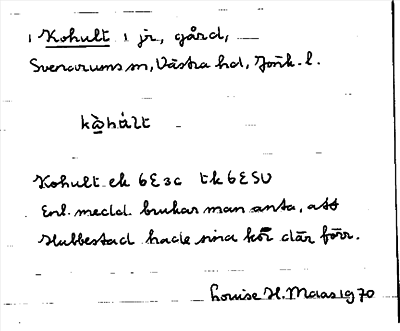 1 Kohult 1 jr, gård,
Svenarums sn, Västra hd, Jönk. l.
kὰhúlt
Kohult ek 6E3c tk 6E5U
Enl. medd. brukar man anta, att
Hubbestad hade sina kor där förr.
Louise H. Maas 1970